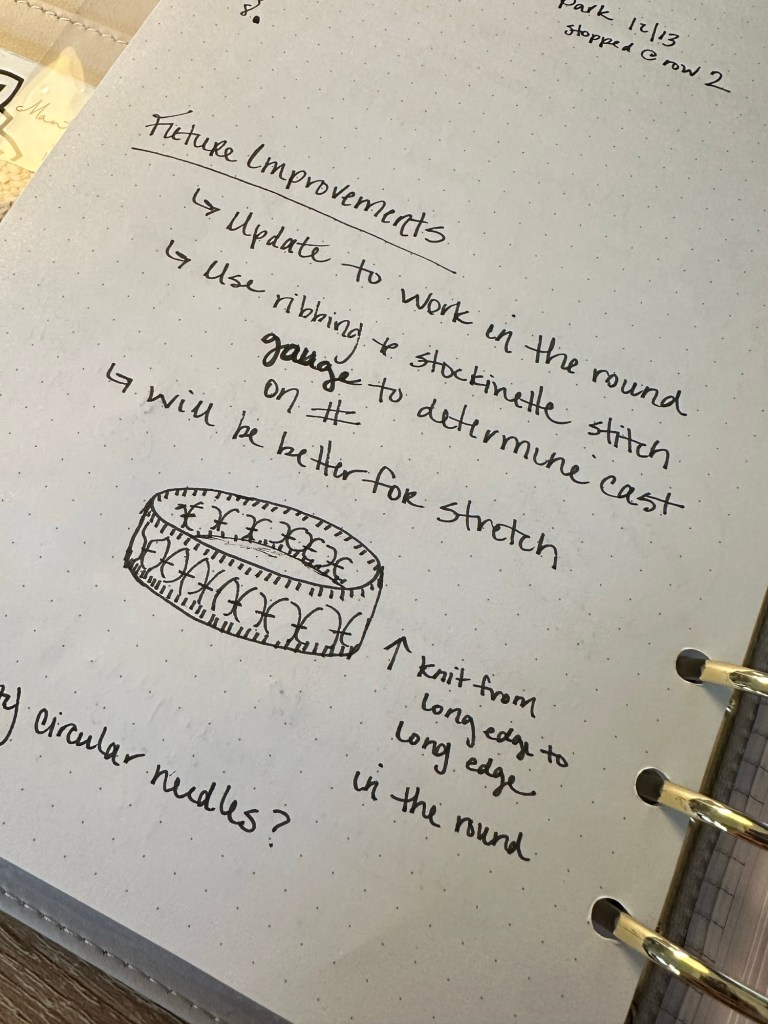 8.
Park 12/13
stopped @ row 2
Future Improvements
↳ Update to work in the round
↳ Use ribbing & stockinette stitch
gauge to determine cast
on #
↳ will be better for stretch
↑ knit from
long edge to
long edge
in the round
circular needles?